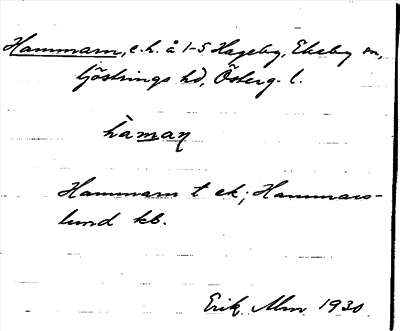 Hammarn, e.h. å 1-5 Hageby, Ekeby sn,
Göstrings hd, Österg. l.
hàmaṇ
Hammarn t ek; Hammars-
lund kb.
Erik Alm 1930